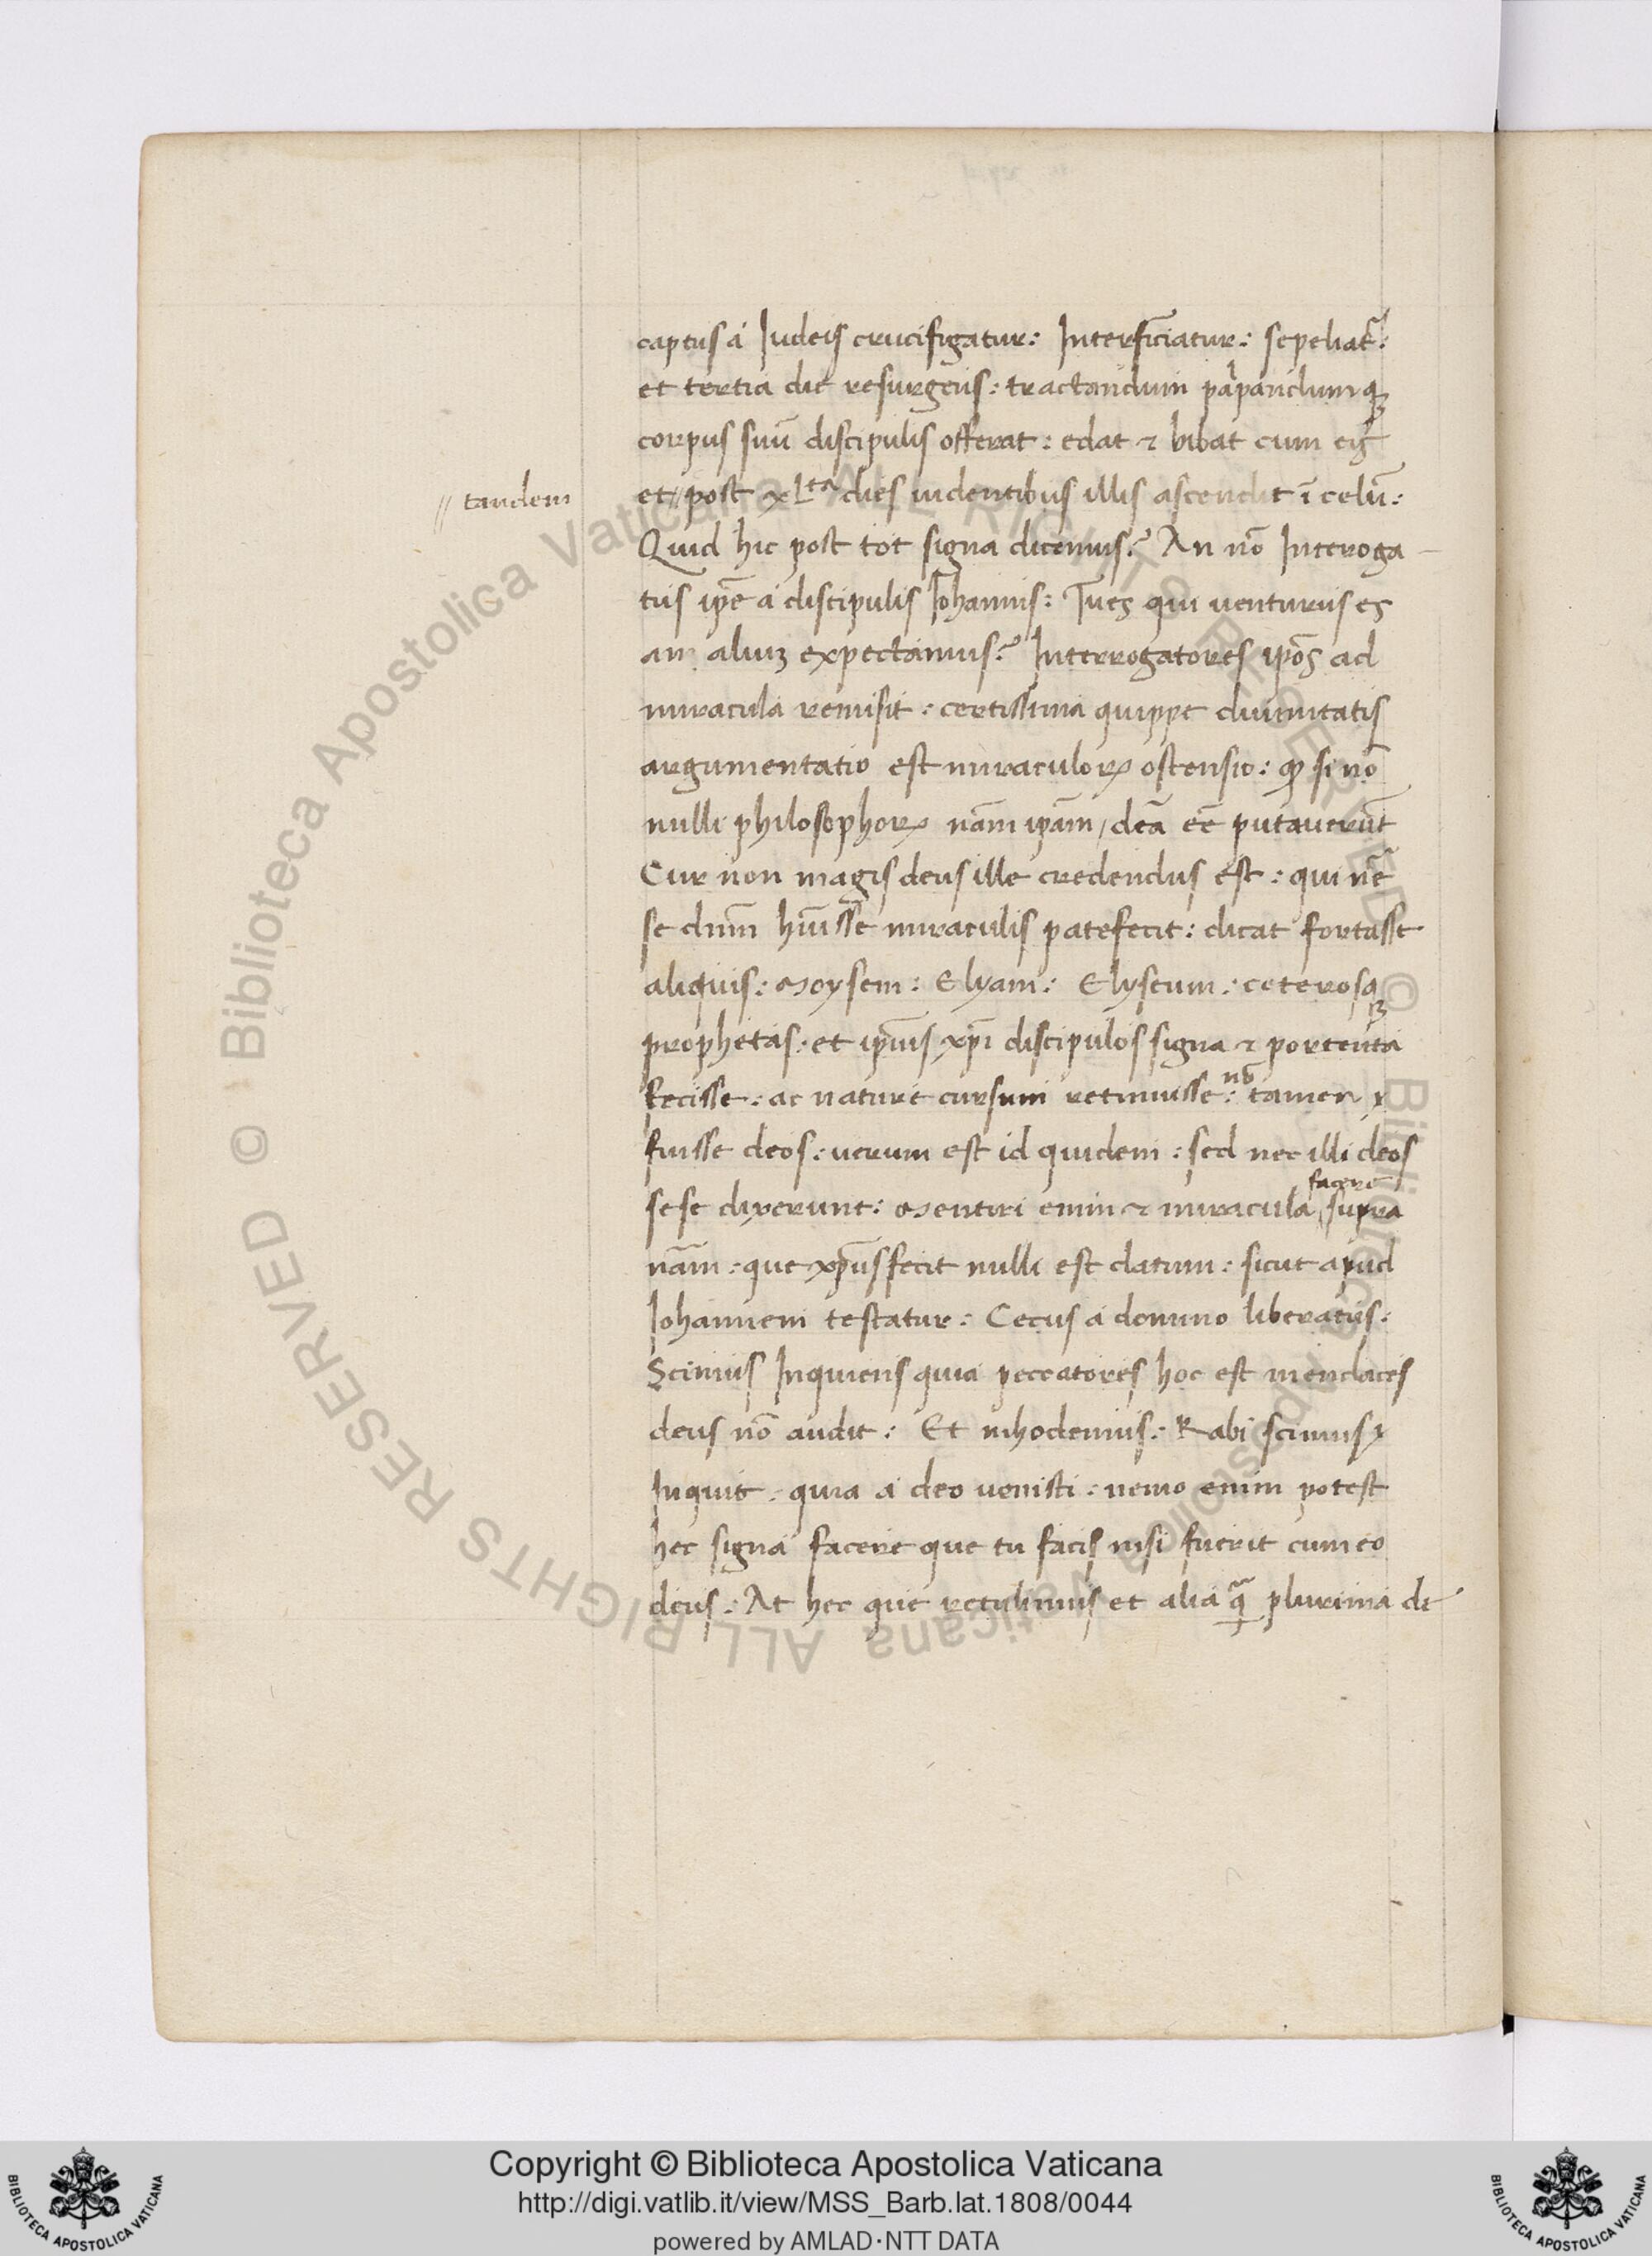 captus a Iudeis crucifigatur: Interficiatur: sepeliat̃:
et tertia die resurgens: tractandum palpandumqꝫ
corpus suũ discipulis offerat: edat ⁊ bibat cum eis
// tandem
et // post xLta dies uidentibus illis ascendit ĩ celũ:
Quid hic post tot signa dicemus? An nõ Interoga-
tus ip̃e a discipulis Iohannis: Tu es qui uenturus es
an aliuꝫ expectamus? Interrogatores ip̃os ad
miracula remisit: certissima quippe diuinitatis
argumentatio est miraculorꝝ ostensio: qꝫ si nõ
nulli philosophorꝝ nãm ip̃am / deã eẽ putauerũt
Cur non magis deus ille credendus est: qui nẽ
se dñm hũisse miraculis patefecit: dicat fortasse
aliquis: Moysem: Elyam: Elyseum: ceterosqꝫ
prophetas: et ip̃ius xp̃i discipulos signa ⁊ portenta
fecisse: ac nature cursum retinuisse: nõ tamen
fuisse deos: uerum est id quidem: sed nec illi deos
facere
sese dixerunt: Mentiri enim ⁊ miracula / supra
nãm: que xp̃us fecit nulli est datum: sicut apud
Iohannem testatur: Cecus a domino liberatus:
Scimus Inquiens quia peccatores hoc est mendaces
deus nõ audit: Et nihodemus: Rabi scimus
Inquit: quia a deo uenisti: nemo enim potest
hec signa facere que tu facis nisi fuerit cum eo
deus: At hec que retulimus et alia q̃ plurima de
© Biblioteca Apostolica Vaticana ALL RIGHTS RESERVED © Biblioteca Apostolica Vaticana ALL RIGHTS RESERVED
Copyright © Biblioteca Apostolica Vaticana
http://digi.vatlib.it/view/MSS_Barb.lat.1808/0044
powered by AMLAD·NTT DATA
BIBLIOTECA APOSTOLICA VATICANA
BIBLIOTECA APOSTOLICA VATICANA